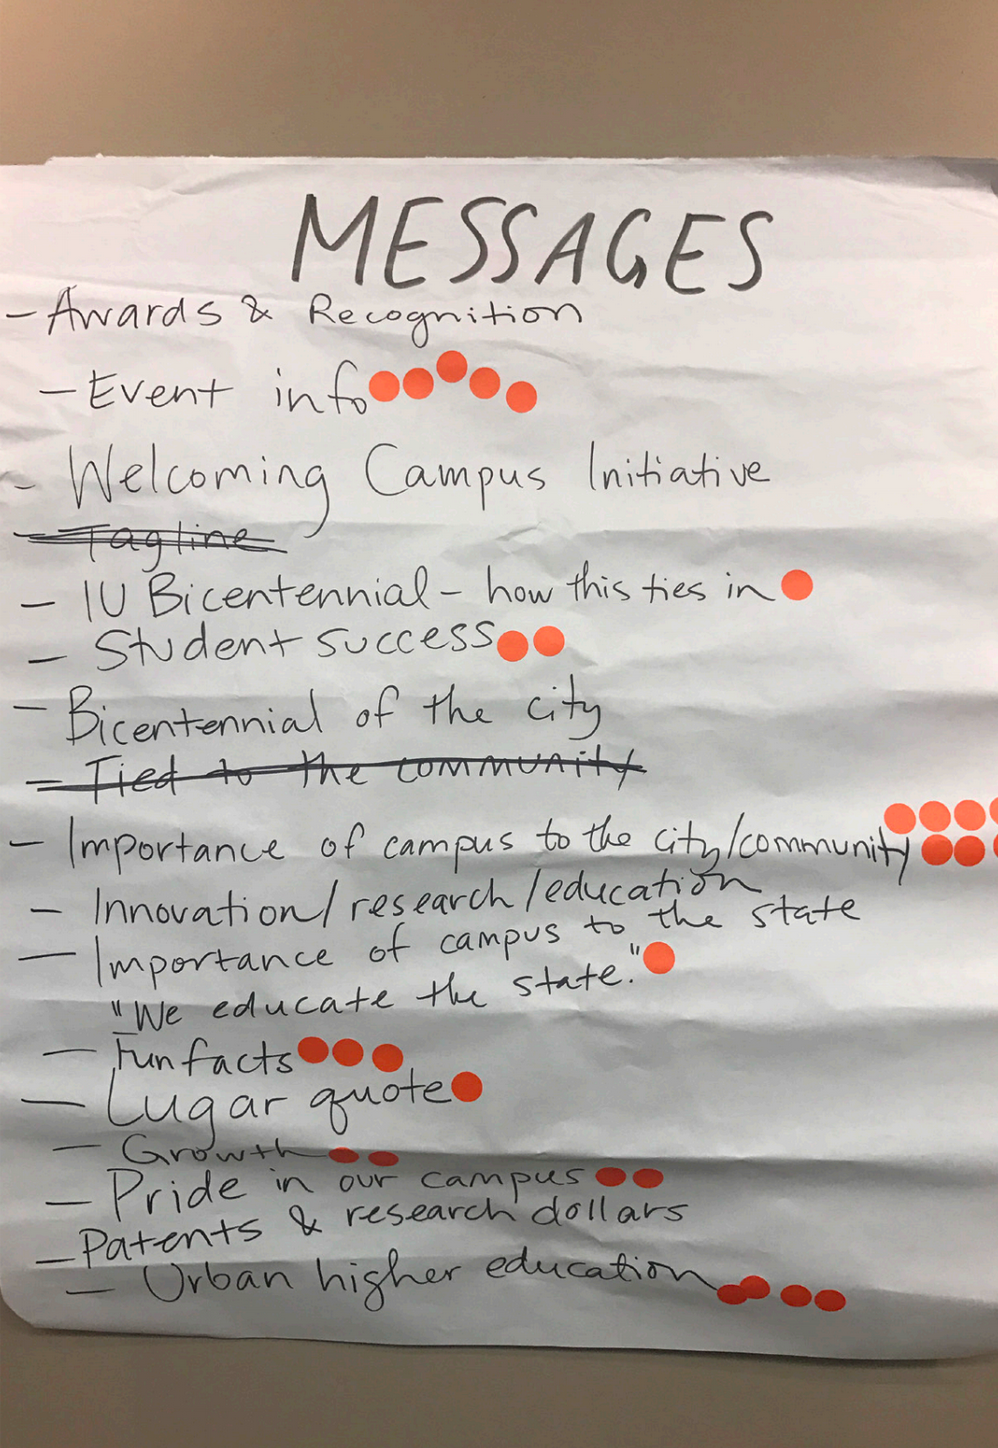 MESSAGES
- Awards & Recognition
- Event info
- Welcoming Campus Initiative
- Tagline
- IU Bicentennial - how this ties in
- Student success
- Bicentennial of the city
- Tied to the community
- Importance of campus to the city/community
- Innovation/research/education
- Importance of campus to the state
"We educate the state."
- Fun facts
- Lugar quote
- Growth
- Pride in our campus
- Patents & research dollars
- Urban higher education